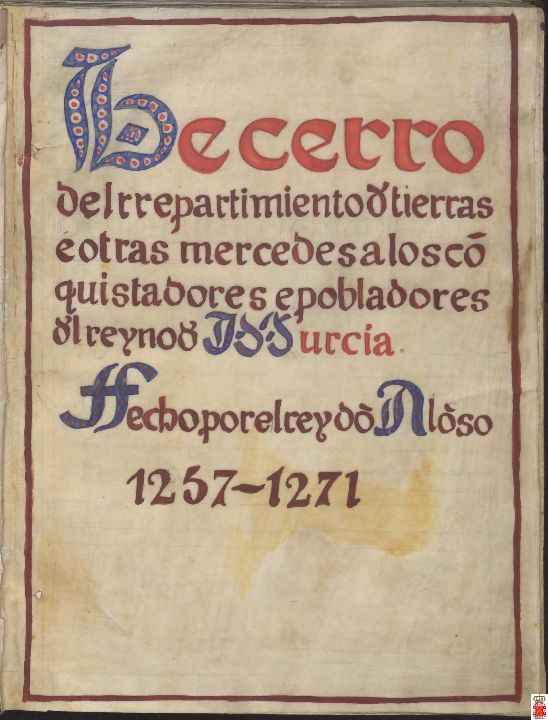 Becerro
del rrepartimiento đ tierras
e otras mercedes a los cō
quistadores e pobladores
đl reyno đ Murcia.
Ffecho por el rey dō Alōso
1257~1271